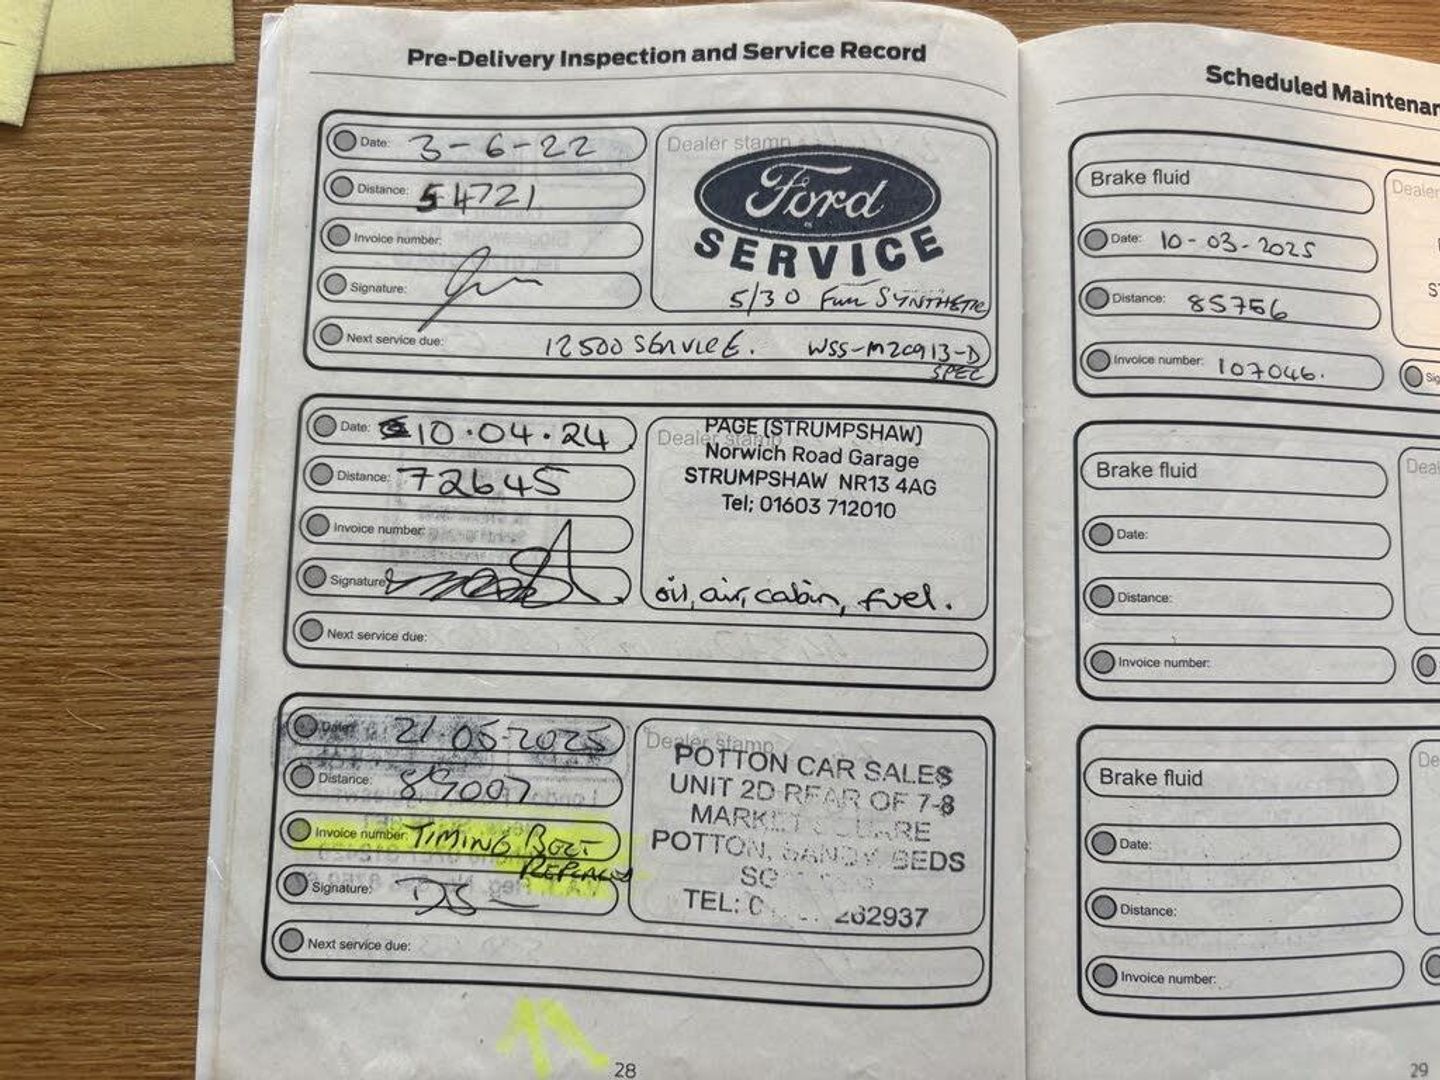 Pre-Delivery Inspection and Service Record
Date: 3-6-22
Distance: 54721
Invoice number:
Signature:
Next service due: 12500 SERVICE. WSS-M2C913-D
SPEC
Dealer stamp
Ford
SERVICE
5/30 Full SYNTHETIC
Date: 10.04.24
Distance: 72645
Invoice number:
Signature
Next service due:
Dealer stamp
PAGE (STRUMPSHAW)
Norwich Road Garage
STRUMPSHAW NR13 4AG
Tel; 01603 712010
oil, air, cabin, fuel.
Date: 21-05-2025
Distance: 89007
Invoice number: TIMING BELT
REPLACED
Signature:
Next service due:
Dealer stamp
POTTON CAR SALES
UNIT 2D REAR OF 7-8
MARKET SQUARE
POTTON, SANDY, BEDS
TEL: 262937
28
Scheduled Maintenan
Brake fluid
Date: 10-03-2025
Distance: 85756
Invoice number: 107046.
Dealer
Sig
Brake fluid
Date:
Distance:
Invoice number:
Deal
Brake fluid
Date:
Distance:
Invoice number:
De
29